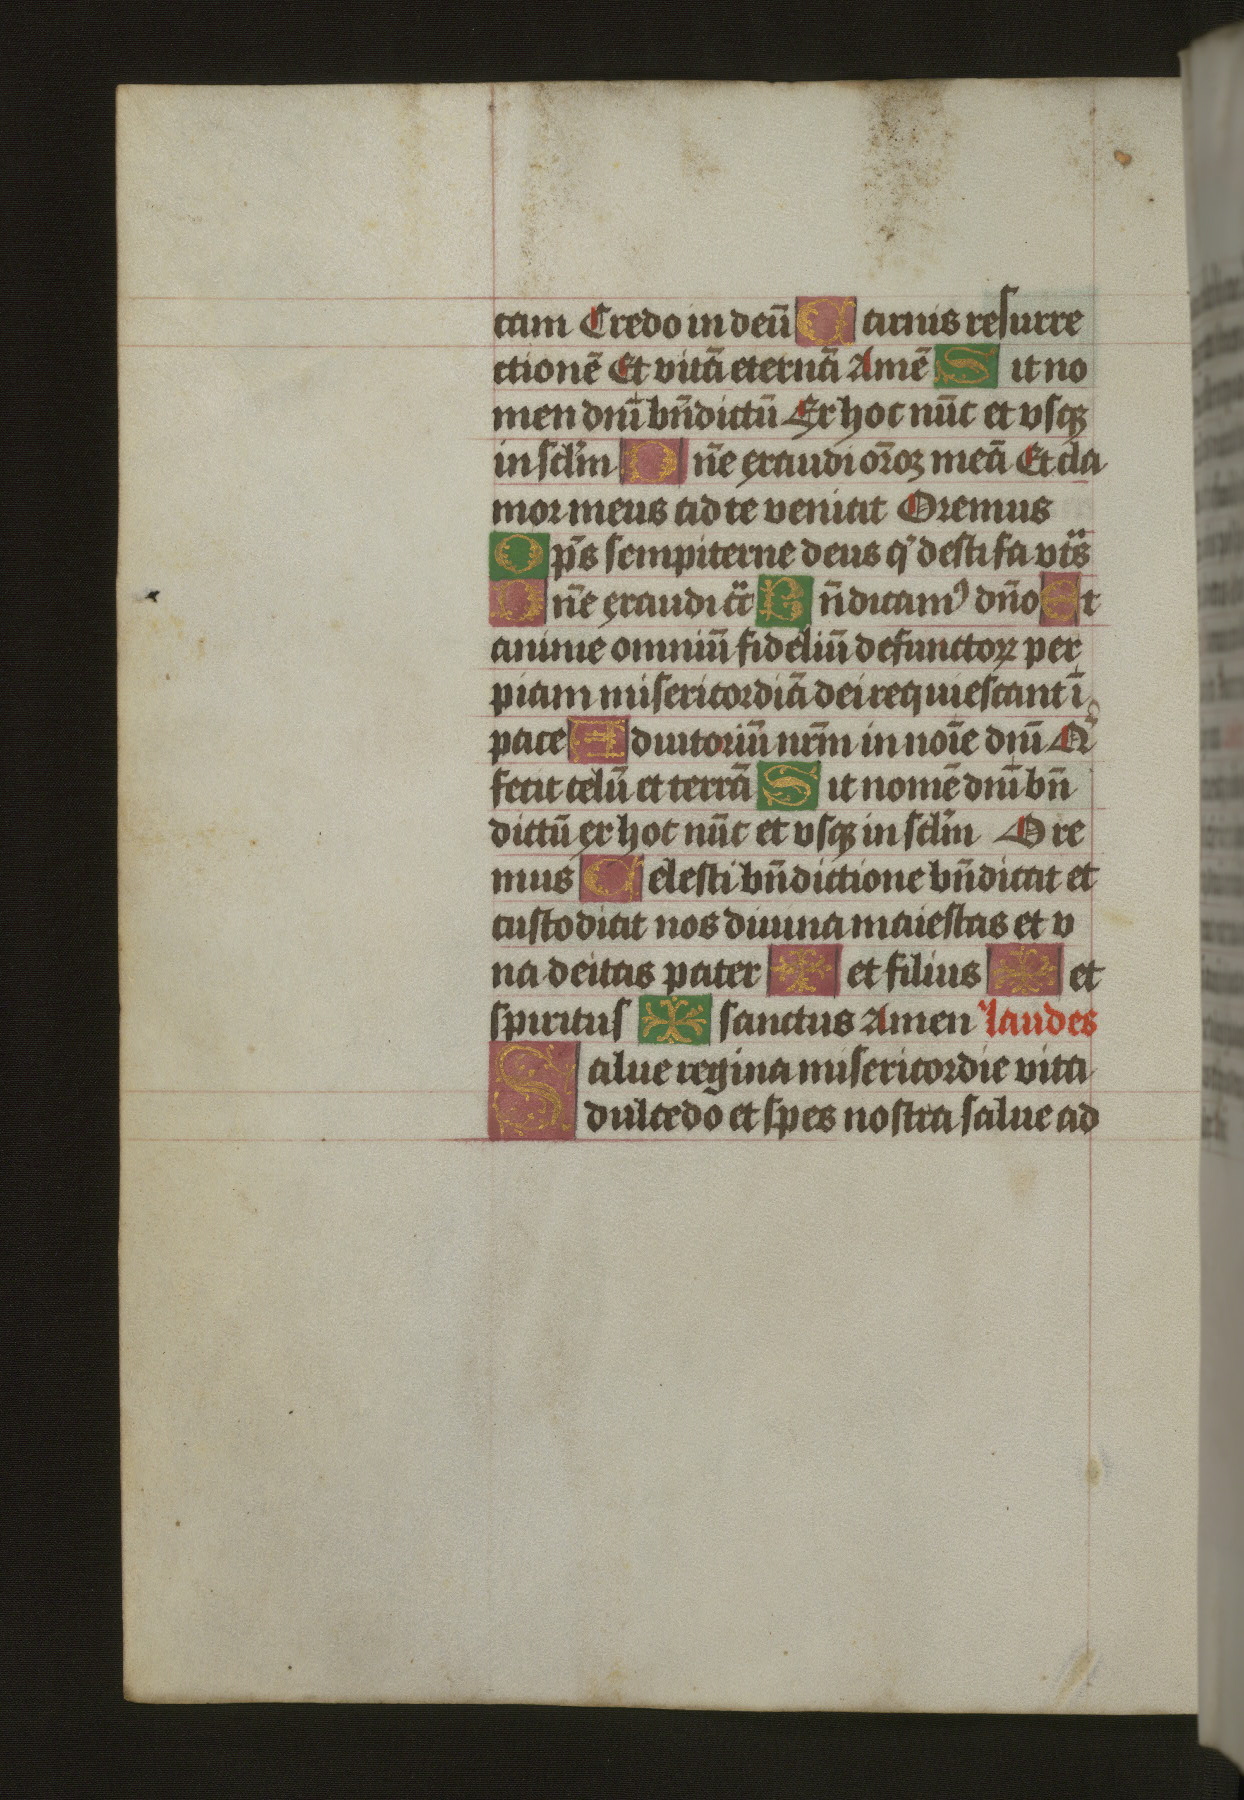 tam Credo in deū Carnis resurre
ctionē Et vitā eternā Amē Sit no
men dnī bn̄dictū Ex hoc nūc et vsqꝫ
in sclm̄ Dn̄e exaudi or̄oꝫ meā Et cla
mor meus ad te veniat Oremus
Op̄s sempiterne deus q' desti fa vt̄s
Dn̄e exaudi et̄ Bn̄dicamꝰ dn̄o Et
anime omniū fideliū defunctoꝝ per
piam misericordiā dei requiescant ī
pace Adiutoriū nrm̄ in noīe dnī Qī
fecit celū et terrā Sit nomē dnī bn̄
dictū ex hoc nūc et vsqꝫ in sclm̄ Ore
mus Celesti bn̄dictione bn̄dicat et
custodiat nos diuina maiestas et v
na deitas pater ✠ et filius ✠ et
spiritus ✠ sanctus Amen laudes
Salue regina misericordie vita
dulcedo et spes nostra salue ad